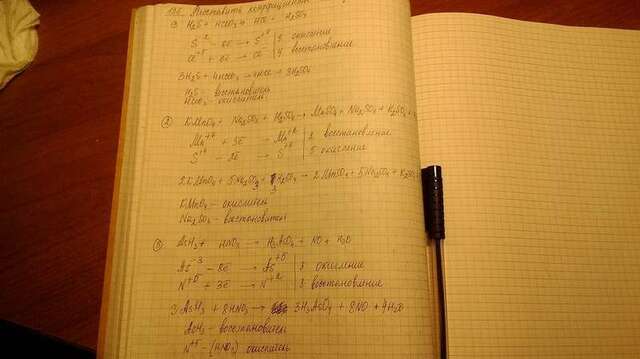 Расставить коэффициенты
① H₂S + HClO₃ → HCl + H₂SO₄
S⁻² - 8ē → S⁺⁶ | 3 окисление
Cl⁺⁵ + 6ē → Cl⁻ | 4 восстановление
3H₂S + 4HClO₃ → 4HCl + 3H₂SO₄
H₂S - восстановитель
HClO₃ - окислитель
② KMnO₄ + Na₂SO₃ + H₂SO₄ → MnSO₄ + Na₂SO₄ + K₂SO₄ +
Mn⁺⁷ + 5ē → Mn⁺² | 2 восстановление
S⁺⁴ - 2ē → S⁺⁶ | 5 окисление
2KMnO₄ + 5Na₂SO₃ + 3H₂SO₄ → 2MnSO₄ + 5Na₂SO₄ + K₂SO₄
KMnO₄ - окислитель
Na₂SO₃ - восстановитель
③ AsH₃ + HNO₃ → H₃AsO₄ + NO + H₂O
As⁻³ - 8ē → As⁺⁵ | 3 окисление
N⁺⁵ + 3ē → N⁺² | 8 восстановление
3AsH₃ + 8HNO₃ → 3H₃AsO₄ + 8NO + 4H₂O
AsH₃ - восстановитель
N⁺⁵ - (HNO₃) окислитель